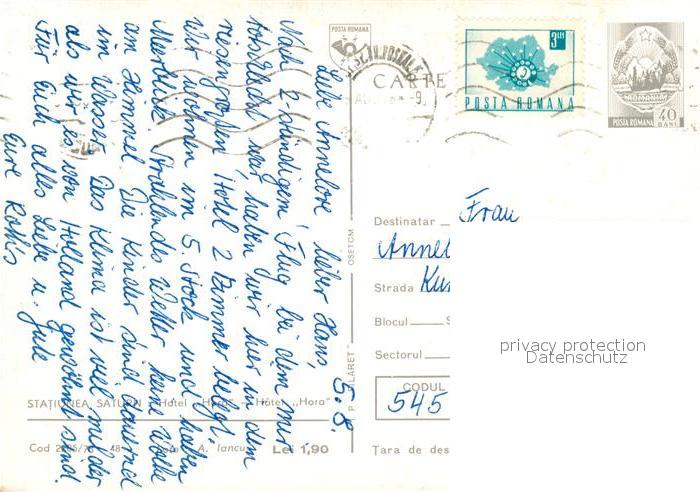 5.8.
Liebe Annelore, lieber Hans,
Nach 2-stündigem Flug bei dem mir
war, haben wir hier in dem
riesengroßen Hotel 2 Zimmer belegt.
Wir wohnen im 5. Stock und haben
Meerblick. Strahlendes Wetter keine Wolke
am Himmel. Die Kinder sind dauernd
im Wasser. Das Klima ist viel milder
als wir es von Holland gewöhnt sind.
Für Euch alles Liebe u. Gute
Eure
POSTA ROMANA
CARTE
3 LEI
POSTA ROMANA
POSTA ROMANA
40
BANI
Destinatar Frau
Annel
Strada Ku
Blocul
Sectorul
privacy protection
Datenschutz
CODUL
545
Țara de des
OSETCM
STAȚIUNEA SATURN Hotel „Hora” – Hôtel „Hora”
Cod
A. Iancu
Lei 1,90